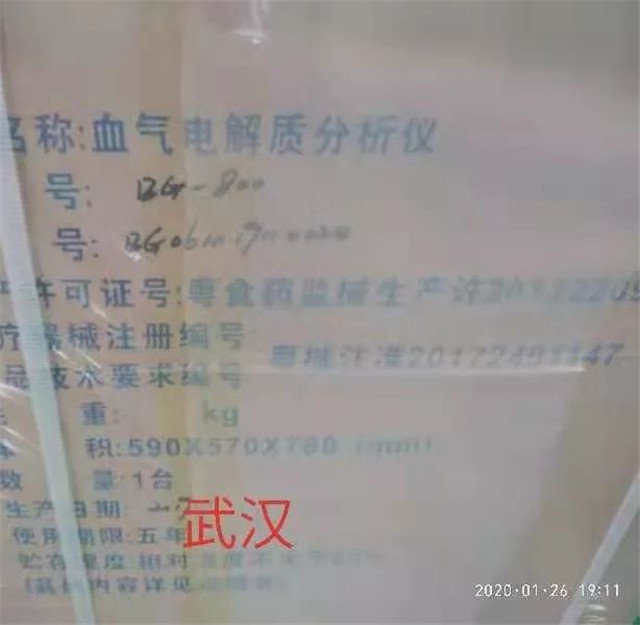 名称:血气电解质分析仪
号: BG-800
号:
许可证号:粤食药监械生产许
疗器械注册编号
粤械注准20172401147
品技术要求编号
重: kg
积:590X570X780 (mm)
数 量:1台
生产日期:
使用期限:五年
武汉
贮存湿度:相对
(其他内容详见说明书)
2020·01·26 19:11